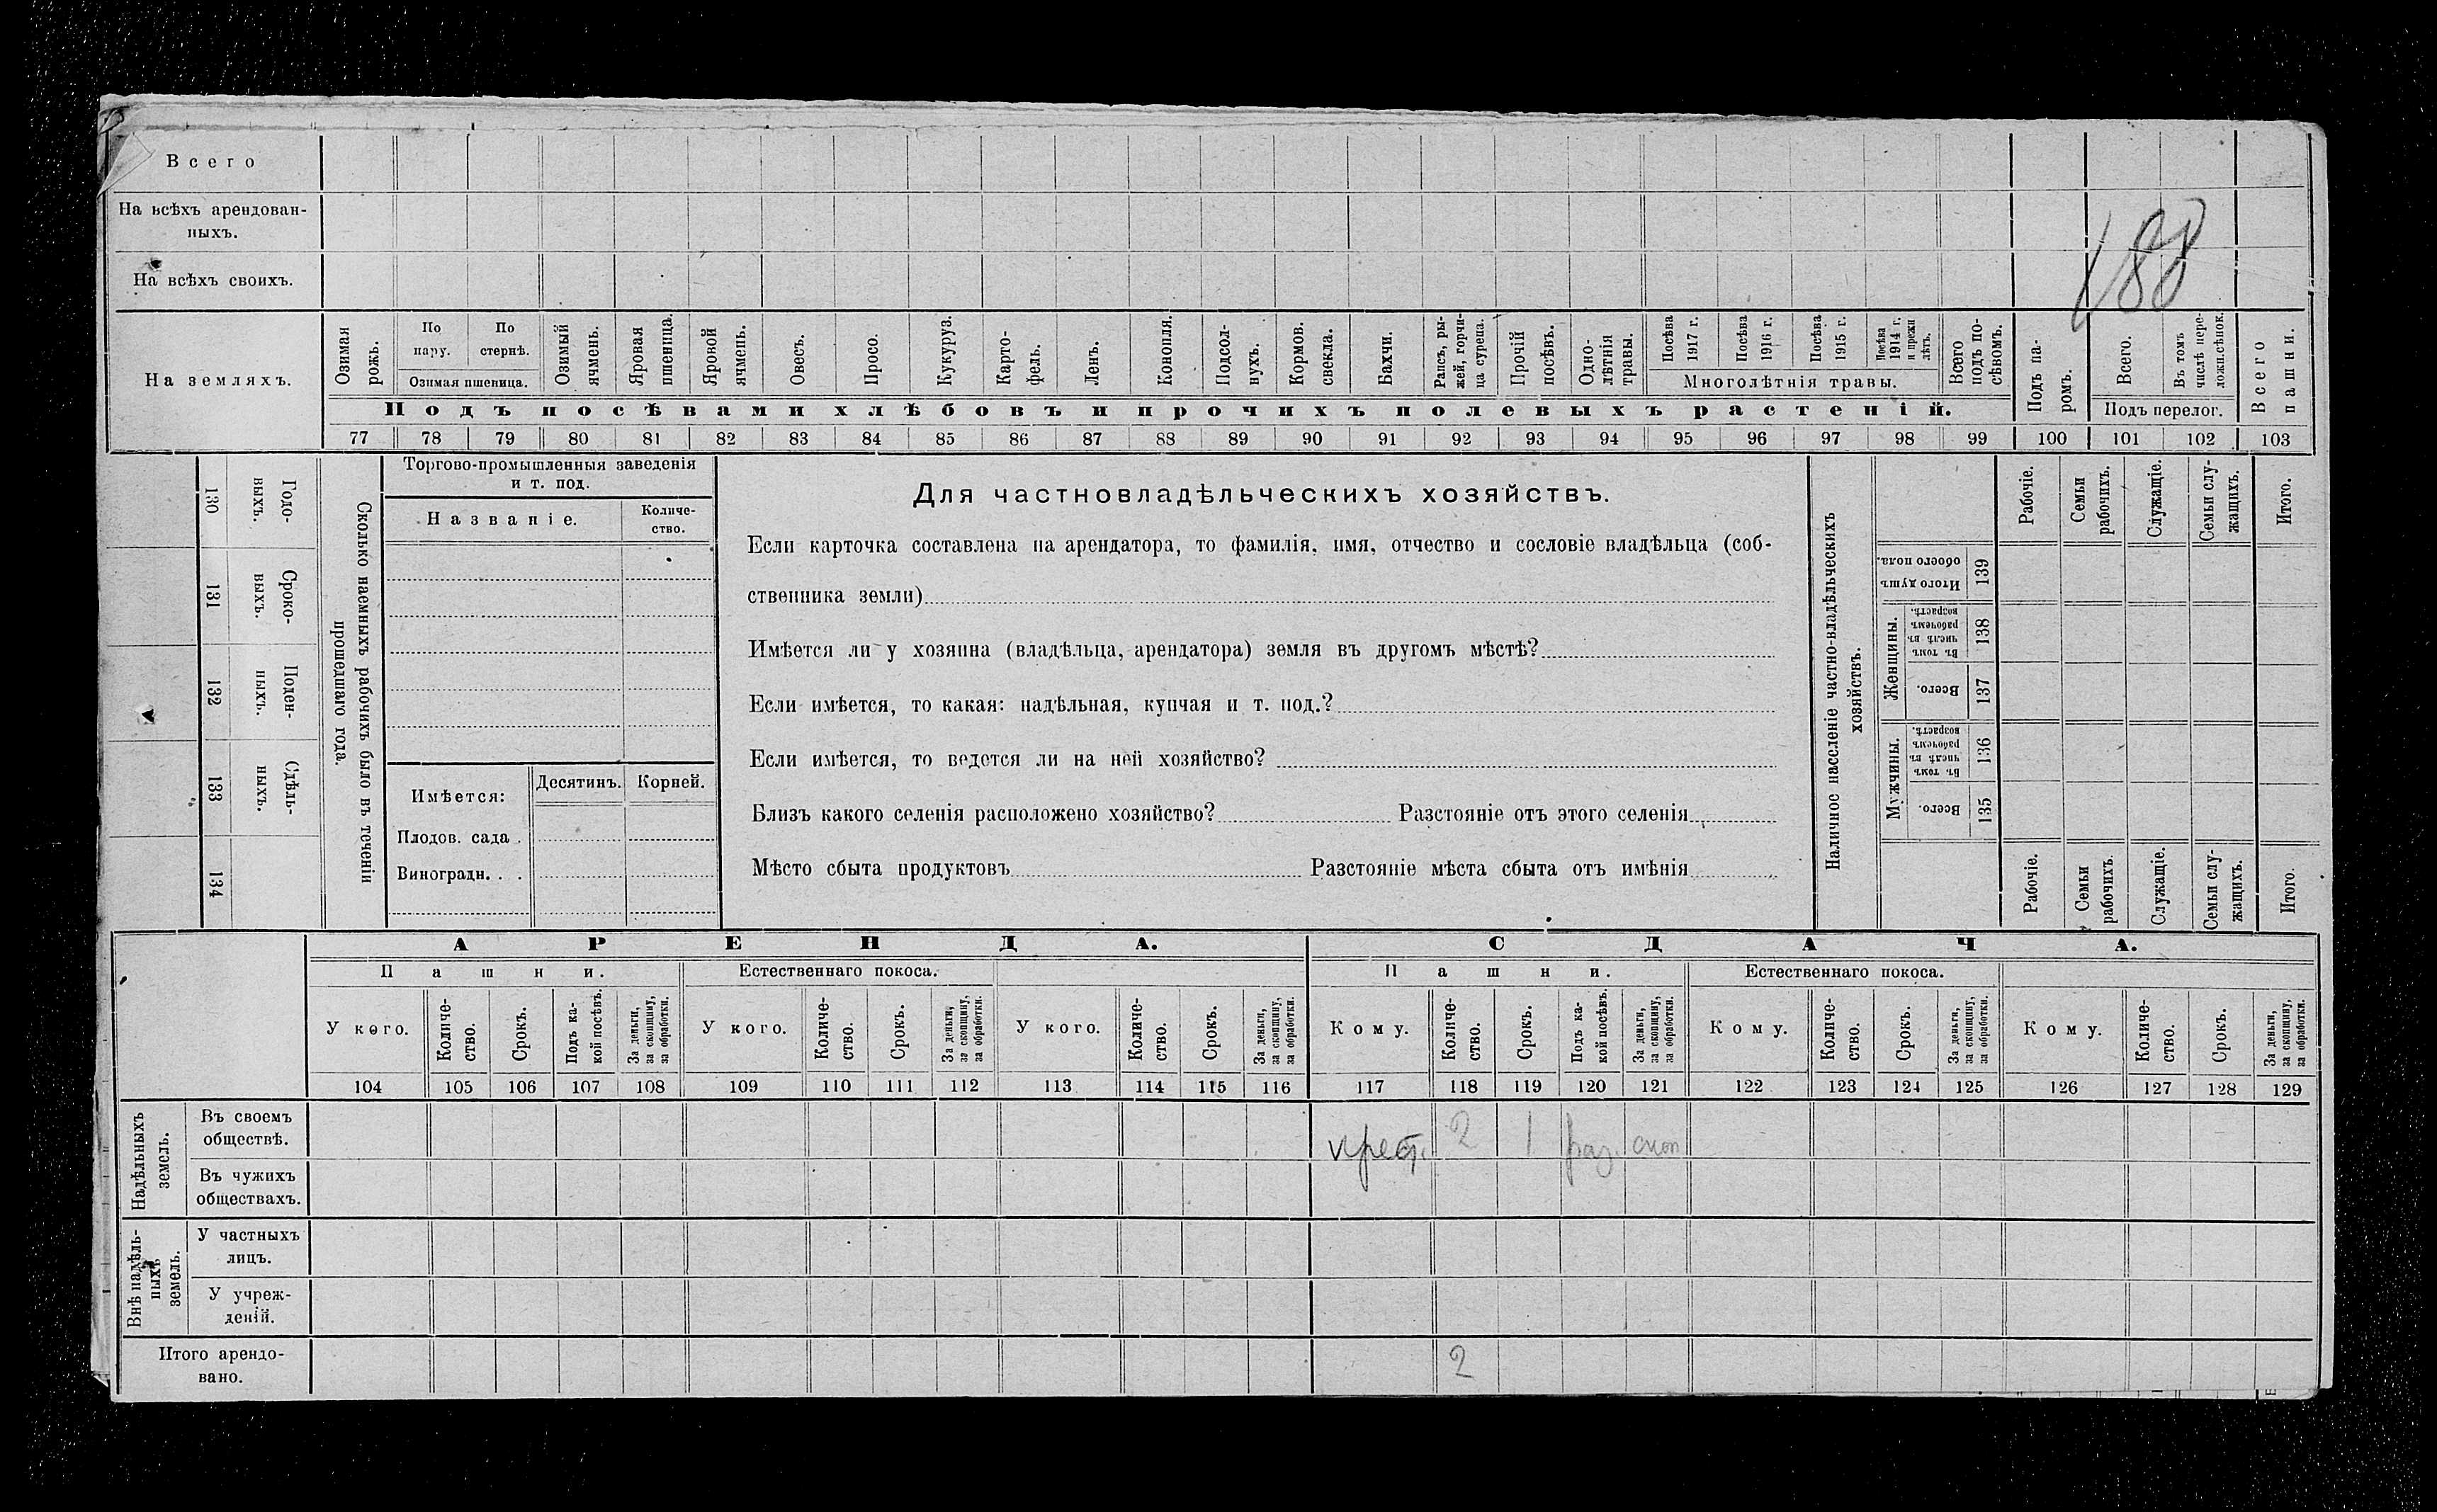 Всего
На всѣхъ арендован-
ныхъ.
На всѣхъ своихъ.
188
На земляхъ.
Озимая рожь.
По пару.
По стернѣ.
Озимая пшеница.
Озимый ячмень.
Яровая пшеница.
Яровой ячмень.
Овесъ.
Просо.
Кукуруз.
Карто-
фель.
Ленъ.
Конопля.
Подсол-
нухъ.
Кормов. свекла.
Бахчи.
Рапсъ, ры-
жей, горчи-
ца сурепа.
Прочій посѣвъ.
Одно-
лѣтнія травы.
Посѣва 1917 г.
Посѣва 1916 г.
Посѣва 1915 г.
Посѣва 1914 г. и прежн лѣтъ.
Многолѣтнія травы.
Всего подъ по-
сѣвомъ.
Подъ посѣвами хлѣбовъ и прочихъ полевыхъ растеній.
Подъ па-
ромъ.
Всего.
Въ томъ числѣ пере-
ложн.сѣнок.
Подъ перелог.
Всего пашни.
77 78 79 80 81 82 83 84 85 86 87 88 89 90 91 92 93 94 95 96 97 98 99 100 101 102 103
130 Годо-
выхъ.
131 Сроко-
выхъ.
132 Поден-
ныхъ.
133 Сдѣль-
ныхъ.
134
Сколько наемныхъ рабочихъ было въ теченіи
прошедшаго года.
Торгово-промышленныя заведенія
и т. под.
Названіе.
Количе-
ство.
Имѣется:
Десятинъ.
Корней.
Плодов. сада .
Виноградн. . .
Для частновладѣльческихъ хозяйствъ.
Если карточка составлена на арендатора, то фамилія, имя, отчество и сословіе владѣльца (соб-
ственника земли)
Имѣется ли у хозяина (владѣльца, арендатора) земля въ другомъ мѣстѣ?
Если имѣется, то какая: надѣльная, купчая и т. под.?
Если имѣется, то ведется ли на ней хозяйство?
Близъ какого селенія расположено хозяйство? Разстояніе отъ этого селенія
Мѣсто сбыта продуктовъ Разстояніе мѣста сбыта отъ имѣнія
Наличное населеніе частно-владѣльческихъ
хозяйствъ.
Рабочіе.
Семьи рабочихъ.
Служащіе.
Семьи слу-
жащихъ.
Итого.
Итого душъ обоего пола. 139
Женщины.
Въ томъ числѣ въ рабочемъ возрастѣ. 138
Всего. 137
Мужчины.
Въ томъ числѣ въ рабочемъ возрастѣ. 136
Всего. 135
Рабочіе.
Семьи рабочихъ.
Служащіе.
Семьи слу-
жащихъ.
Итого.
АРЕНДА.
СДАЧА.
Пашни.
Естественнаго покоса.
Пашни.
Естественнаго покоса.
У кого.
Количе-
ство.
Срокъ.
Подъ ка-
кой посѣвъ.
За деньги, за скопщину, за обработки.
У кого.
Количе-
ство.
Срокъ.
За деньги, за скопщину, за обработки.
У кого.
Количе-
ство.
Срокъ.
За деньги, за скопщину, за обработки.
Кому.
Количе-
ство.
Срокъ.
Подъ ка-
кой посѣвъ.
За деньги, за скопщину, за обработки.
Кому.
Количе-
ство.
Срокъ.
За деньги, за скопщину, за обработки.
Кому.
Количе-
ство.
Срокъ.
За деньги, за скопщину, за обработки.
104 105 106 107 108 109 110 111 112 113 114 115 116 117 118 119 120 121 122 123 124 125 126 127 128 129
Надѣльныхъ
земель.
Въ своемъ
обществѣ.
крест. 2 1 раз. скоп
Въ чужихъ
обществахъ.
Внѣ надѣль-
ныхъ
земель.
У частныхъ
лицъ.
У учреж-
деній.
Итого арендо-
вано.
2